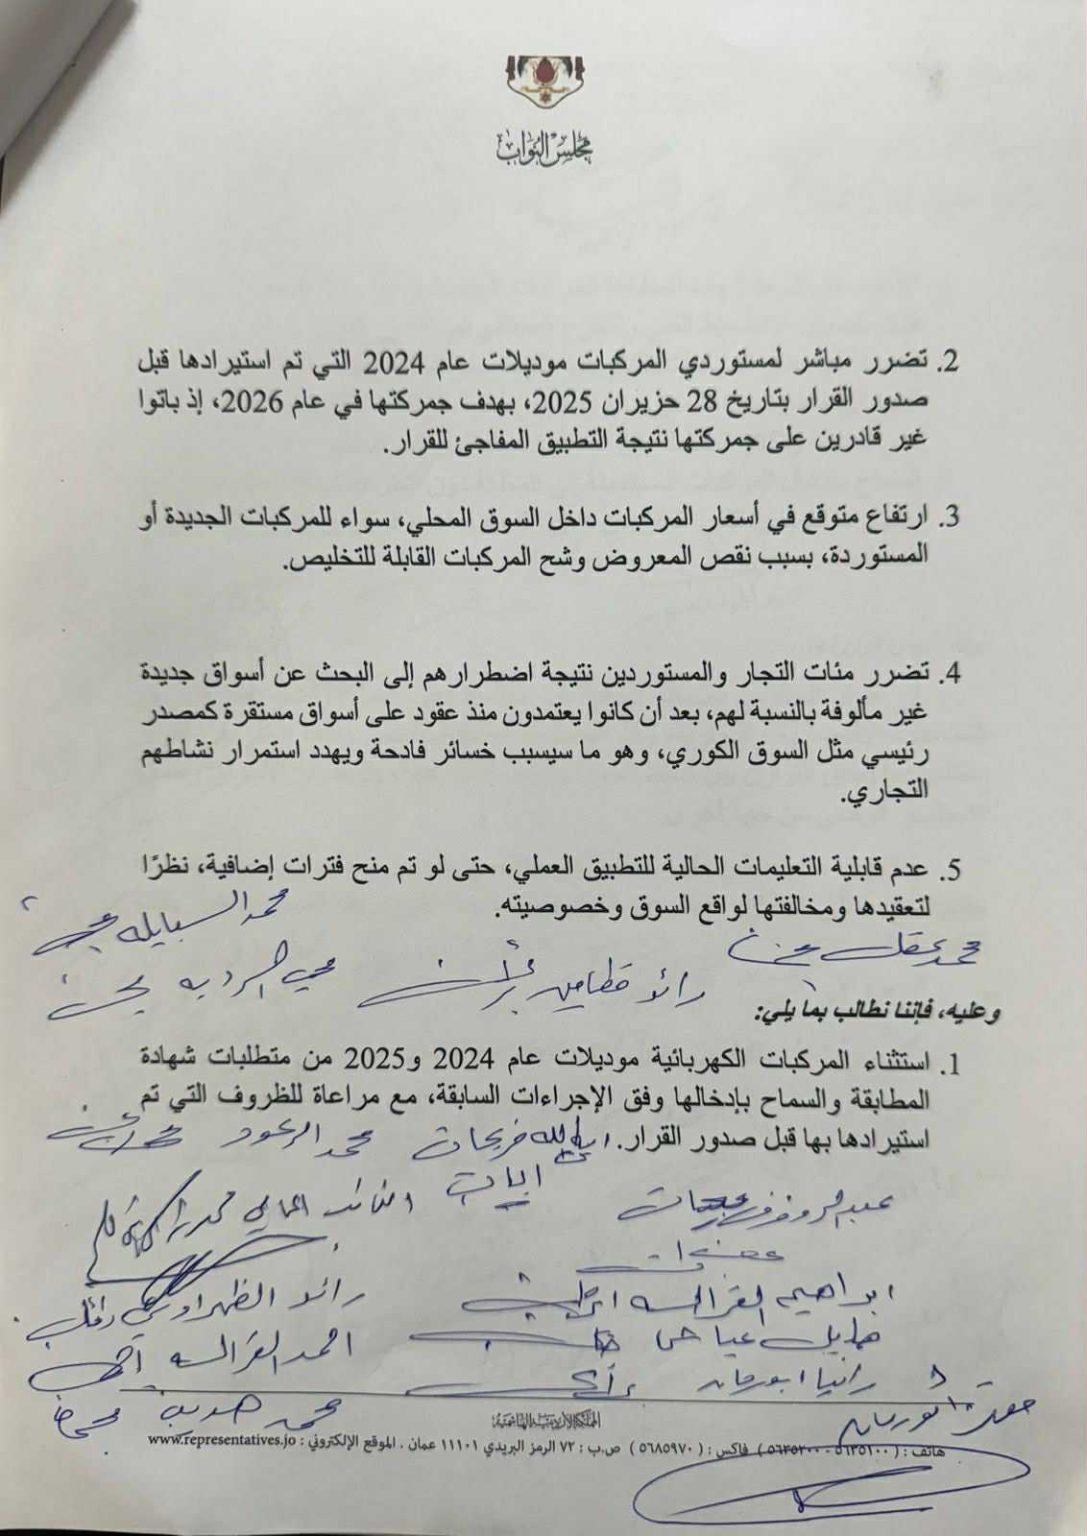 مجلس النواب
2. تضرر مباشر لمستوردي المركبات موديلات عام 2024 التي تم استيرادها قبل
صدور القرار بتاريخ 28 حزيران 2025، بهدف جمركتها في عام 2026، إذ باتوا
غير قادرين على جمركتها نتيجة التطبيق المفاجئ للقرار.
3. ارتفاع متوقع في أسعار المركبات داخل السوق المحلي، سواء للمركبات الجديدة أو
المستوردة، بسبب نقص المعروض وشح المركبات القابلة للتخليص.
4. تضرر مئات التجار والمستوردين نتيجة اضطرارهم إلى البحث عن أسواق جديدة
غير مألوفة بالنسبة لهم، بعد أن كانوا يعتمدون منذ عقود على أسواق مستقرة كمصدر
رئيسي مثل السوق الكوري، وهو ما سيسبب خسائر فادحة ويهدد استمرار نشاطهم
التجاري.
5. عدم قابلية التعليمات الحالية للتطبيق العملي، حتى لو تم منح فترات إضافية، نظرًا
لتعقيدها ومخالفتها لواقع السوق وخصوصيته.
محمد السبايله
محمد عقل
رائد قطامين
وعليه، فإننا نطالب بما يلي:
1. استثناء المركبات الكهربائية موديلات عام 2024 و2025 من متطلبات شهادة
المطابقة والسماح بإدخالها وفق الإجراءات السابقة، مع مراعاة للظروف التي تم
استيرادها بها قبل صدور القرار.
فريحات محمد الرعود
النائب
ابراهيم القرالسه
رائد الظهراوي
هايل عياش
احمد القرالسه
رانيا ابورمان
محمد هديب
ابورمان
المملكة الأردنية الهاشمية
هاتف : ( ٥٦٣٥١٠٠ - ٥٦٣٥٢٠٠ ) فاكس : ( ٥٦٨٥٩٧٠ ) ص.ب : ٧٢ الرمز البريدي ١١١٠١ عمان . الموقع الإلكتروني : www.representatives.jo